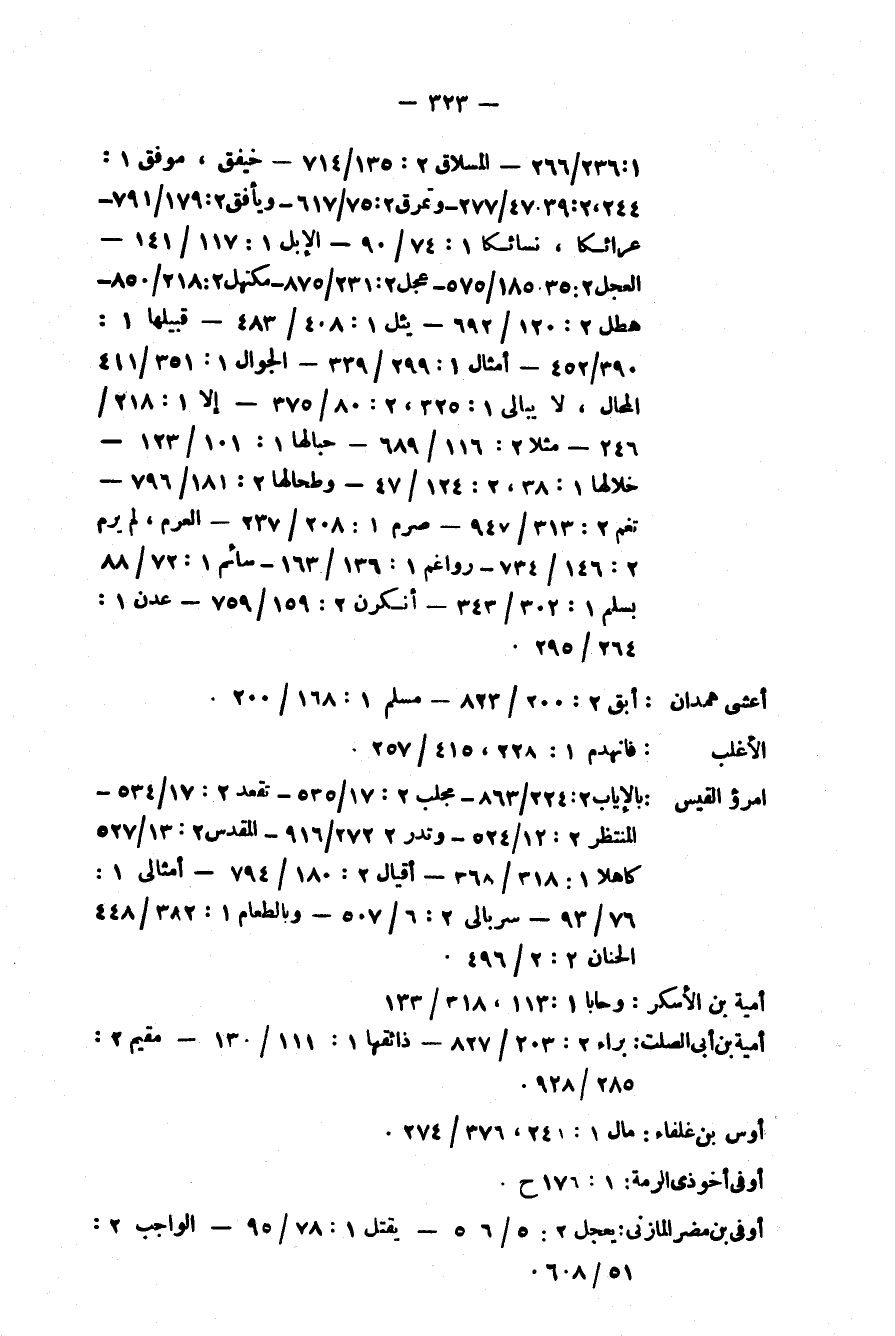 — ٣٢٣ —
١:٢٦٦/٢٣٦ — المسلاق ٢ : ٧١٤/١٣٥ — خيفق ، موفق ١ :
٢٤٤،٢:٣٩.٢٧٧/٤٧–وتمرق٢:٦١٧/٧٥–ويأفق٢:٧٩١/١٧٩–
عرائكا ، نسائكا ١ : ٧٤ / ٩٠ — الإبل ١ : ١١٧ / ١٤١ —
العجل٢:٣٥.٥٧٥/١٨٥–عجل٢:٨٧٥/٢٣١–مكتهل٢:٨٥٠/٢١٨–
هطل ٢ : ١٢٠ / ٦٩٢ — يئل ١ : ٤٠٨ / ٤٨٣ — قبيلها ١ :
٤٥٢/٣٩٠ — أمثال ١ : ٢٩٩ / ٣٣٩ — الجوال ١ : ٣٥١ / ٤١١
المحال ، لا يبالى ١ : ٣٢٥ ، ٢ : ٨٠ / ٣٧٥ — إلا ١ : ٢١٨ /
٢٤٦ — مثلا ٢ : ١١٦ / ٦٨٩ — حبالها ١ : ١٠١ / ١٢٣ —
خلالها ١ : ٣٨ ، ٢ : ١٢٤ / ٤٧ — وطحالها ٢ : ١٨١ / ٧٩٦ —
تغم ٢ : ٣١٣ / ٩٤٧ — صرم ١ : ٢٠٨ / ٢٣٧ — العرم ، لم يرم
٢ : ١٤٦ / ٧٣٤ — رواغم ١ : ١٣٦ / ١٦٣ – سائم ١ : ٧٢ / ٨٨
بسلم ١ : ٣٠٢ / ٣٤٣ — أنكرن ٢ : ١٥٩ / ٧٥٩ — عدن ١ :
٢٦٤ / ٢٩٥ .
أعشى همدان : أبق ٢ : ٢٠٠ / ٨٢٣ — مسلم ١ : ١٦٨ / ٢٠٠ .
الأغلب : فانهدم ١ : ٢٢٨ ، ٤١٥ / ٢٥٧ .
امرؤ القيس :بالإياب٢:٨٦٣/٢٢٤– مجلب ٢ : ٥٣٥/١٧– تقعد ٢ : ٥٣٤/١٧ –
المنتظر ٢ : ٥٢٤/١٢ – وتدر ٢ ٩١٦/٢٧٢ – المقدس٢ : ٥٢٧/١٣
كاهلا ١ : ٣١٨ / ٣٦٨ — أقيال ٢ : ١٨٠ / ٧٩٤ — أمثالى ١ :
٧٦ / ٩٣ — سربالى ٢ : ٦ / ٥٠٧ — وبالطعام ١ : ٣٨٢ / ٤٤٨
الحنان ٢ : ٢ / ٤٩٦ .
أمية بن الأسكر : وحابا ١ : ١١٣ ، ٣١٨ / ١٣٣
أمية بن أبى الصلت: براء ٢ : ٢٠٣ / ٨٢٧ — ذائقها ١ : ١١١ / ١٣٠ — مقيم ٢ :
٢٨٥ / ٩٢٨ .
أوس بن غلفاء : مال ١ : ٢٤١ ، ٣٧٦ / ٢٧٤ .
أوفى أخو ذى الرمة: ١ : ١٧٦ ح .
أوفى بن مضر المازنى: يعجل ٢ : ٥ / ٦ ٥ — يقتل ١ : ٧٨ / ٩٥ — الواجب ٢ :
٥١ / ٦٠٨ .